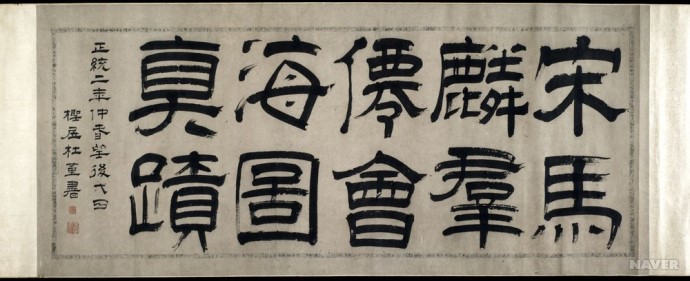 宋馬
麟羣
僊會
海圖
真蹟
正統二年仲春望後日
檉居杜堇書
NAVER